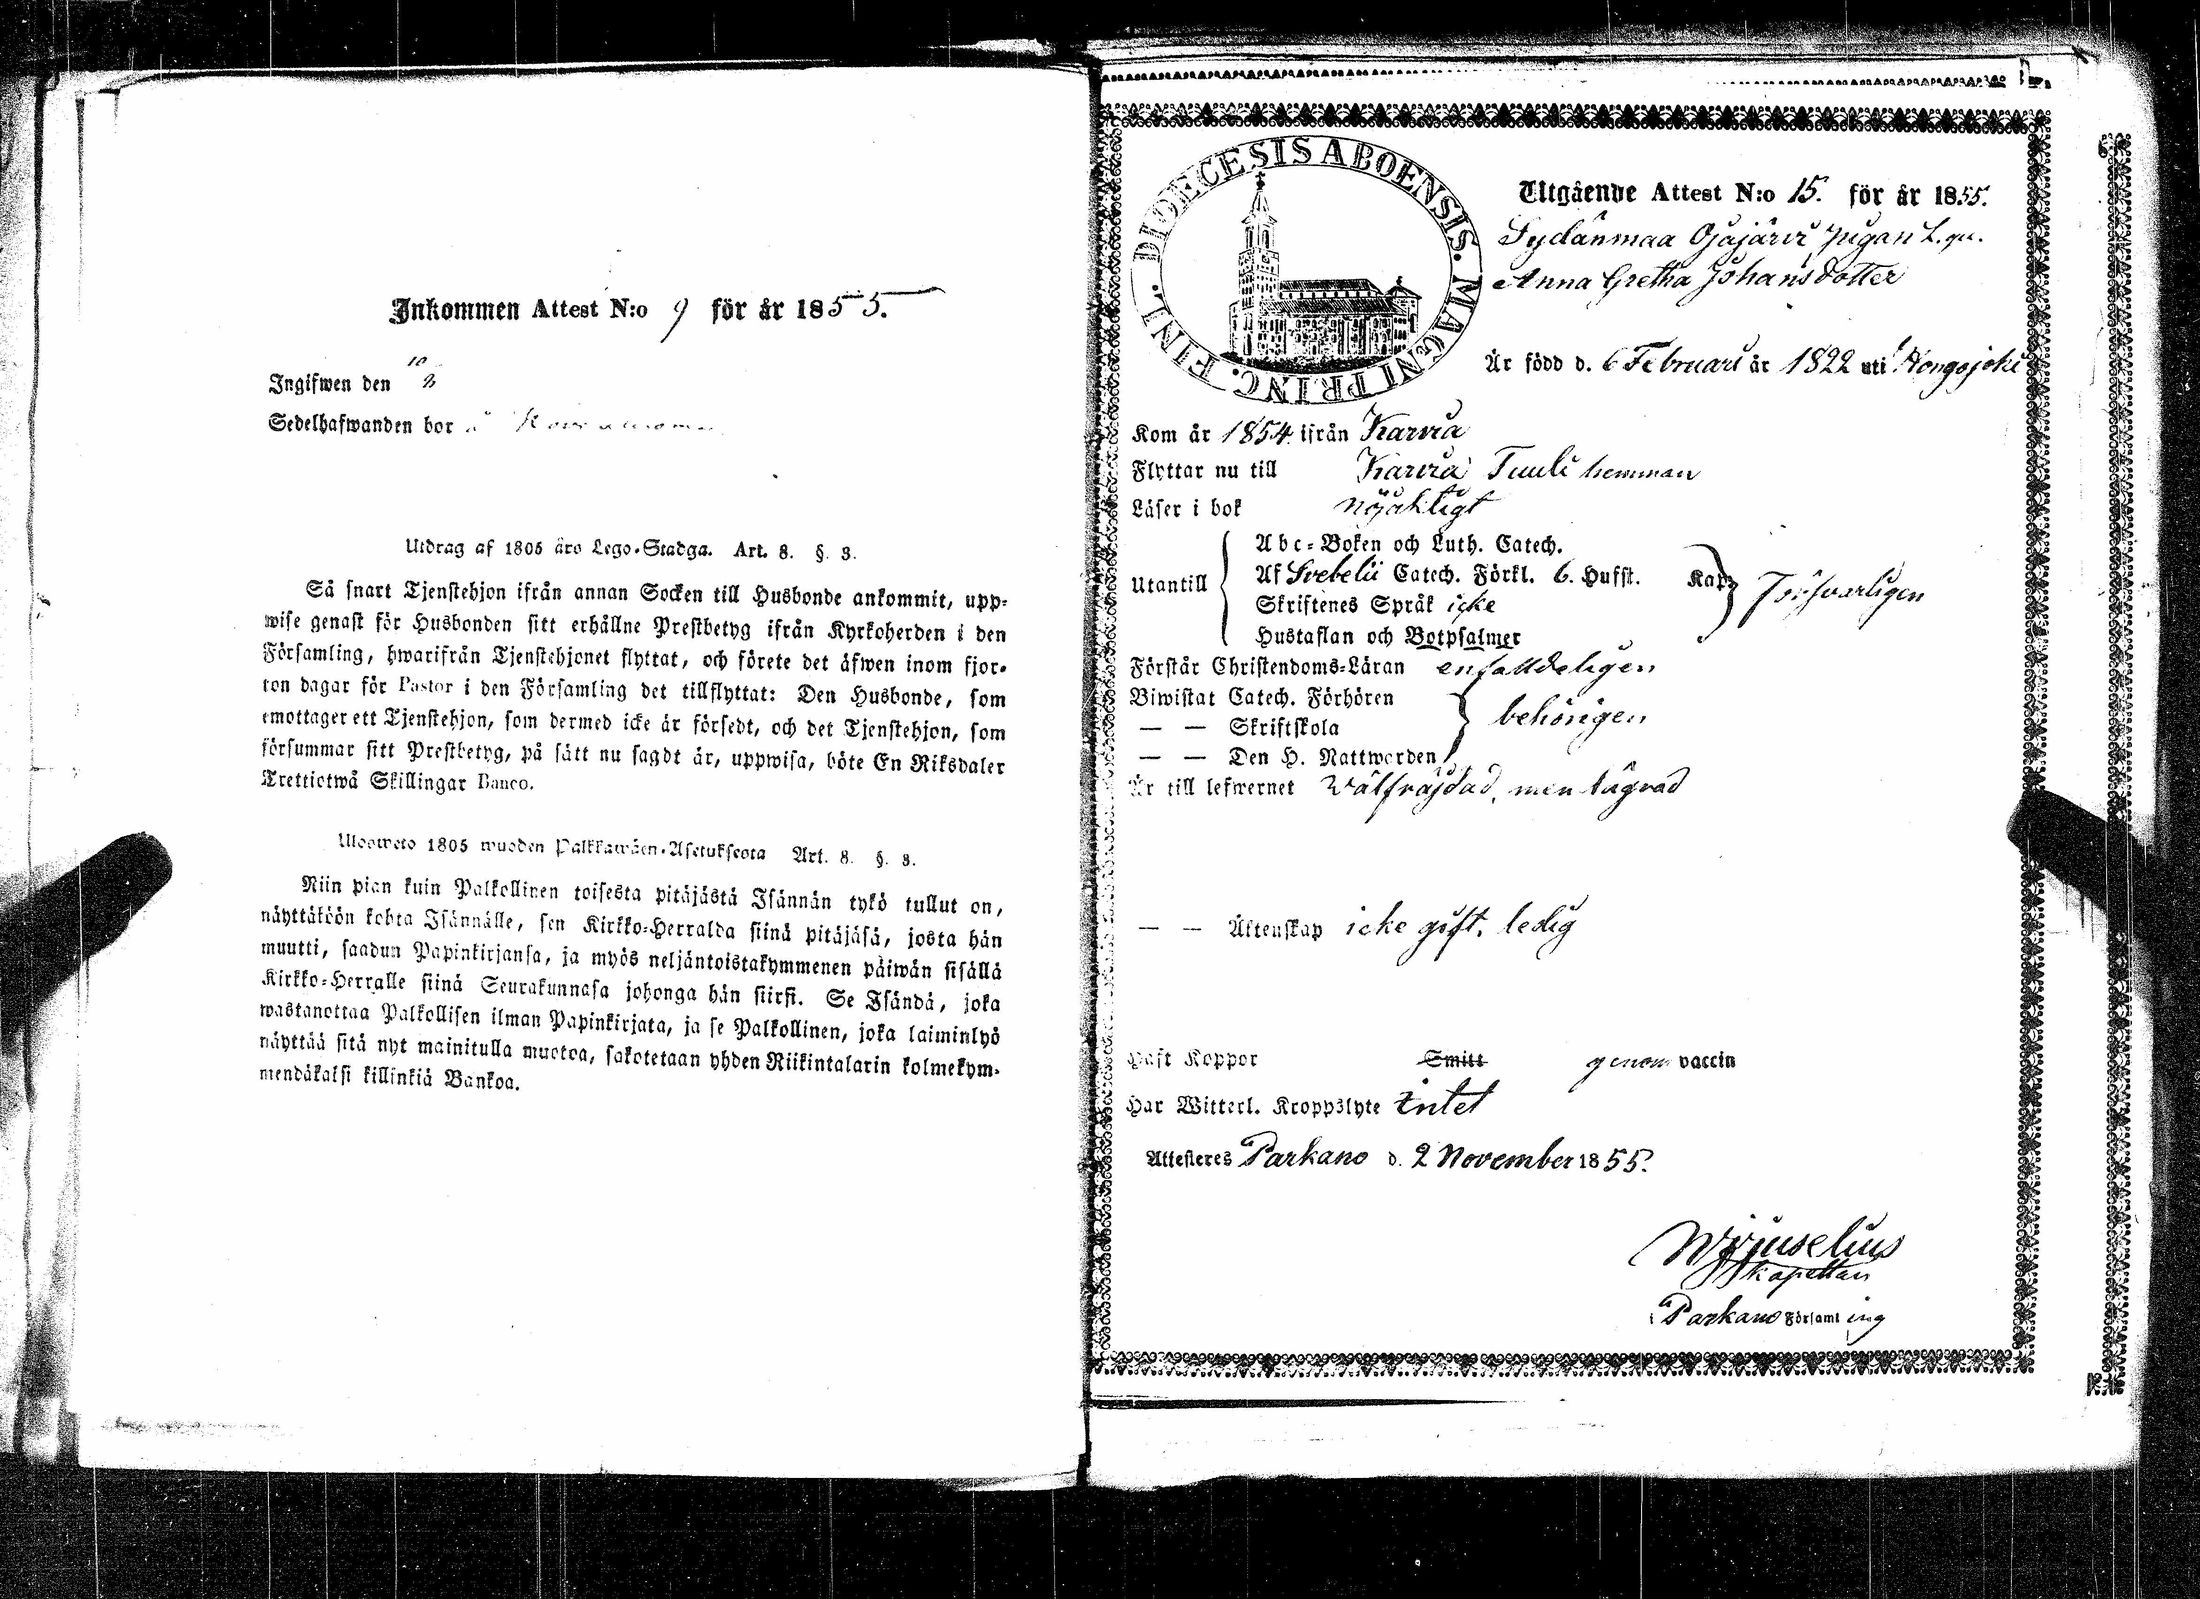 Inkommen Attest N:o 9 för år 1855.
Ingifwen den
Sedelhafwanden bor å
Utdrag af 1805 års Lego-Stadga. Art. 8. §. 3.
Så snart Tjenstehjon ifrån annan Socken till Husbonde ankommit, upp-
wise genast för Husbonden sitt erhållne Prestbetyg ifrån Kyrkoherden i den
Församling, hwarifrån Tjenstehjonet flyttat, och förete det äfwen inom fjor-
ton dagar för Pastor i den Församling det tillflyttat: Den Husbonde, som
emottager ett Tjenstehjon, som dermed icke är försedt, och det Tjenstehjon, som
försummar sitt Prestbetyg, på sätt nu sagdt är, uppwisa, böte En Riksdaler
Trettiotwå Skillingar Banco.
Ulosweto 1805 wuoden Palkkawäen-Asetuksesta Art. 8. §. 3.
Niin pian kuin Palkollinen toisesta pitäjästä Isännän tykö tullut on,
näyttäköön kohta Isännälle, sen Kirkko-Herralda siinä pitäjäsä, josta hän
muutti, saadun Papinkirjansa, ja myös neljäntoistakymmenen päiwän sisällä
Kirkko-Herralle siinä Seurakunnasa johonga hän siirsi. Se Isändä, joka
wastanottaa Palkollisen ilman Papinkirjata, ja se Palkollinen, joka laiminlyö
näyttää sitä nyt mainitulla muotoa, sakotetaan yhden Riikintalarin kolmekym-
mendäkaksi killinkiä Bankoa.
DIOECESIS ABOENSIS. MAGNI PRINC. FINL.
Utgående Attest N:o 15. för år 1855.
Sydänmaa Ojajärvi
Anna Gretha Johansdotter
Är född d. 6 Februari år 1822 uti Hongojoki
Kom år 1854 ifrån Karvia
Flyttar nu till Karvia Tuuli hemman
Läser i bok nöjaktigt
Utantill
Abc-Boken och Luth. Catech.
Af Svebelii Catech. Förkl. 6. Hufst. Kap.
Skriftenes Språk icke
Hustaflan och Botpsalmer
Försvarligen
Förstår Christendoms-Läran enfalldeligen
Biwistat Catech. Förhören
— — Skriftskola
— — Den H. Nattwarden
behörigen
Är till lefwernet Välfräjdad, men lägrad
— — Äktenskap icke gift, ledig
Haft Koppor Smitt genom vaccin
Har Witterl. Kroppslyte Intet
Attesteres Parkano d. 2 November 1855.
Wjuselius
Kapellan
i Parkano Församling